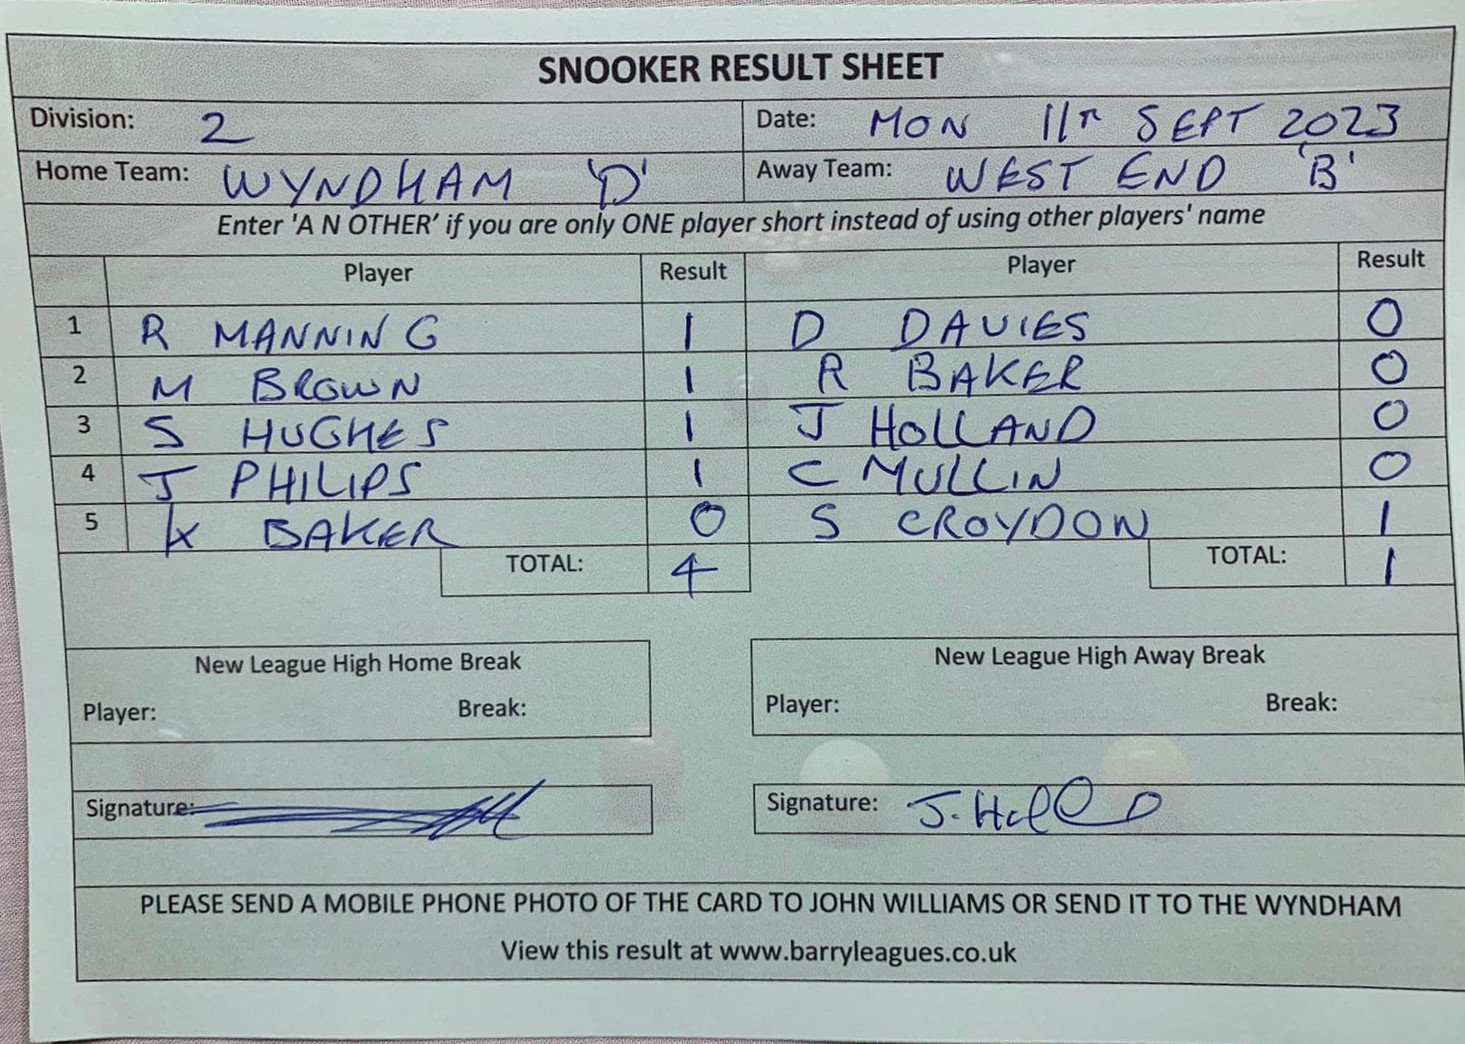 SNOOKER RESULT SHEET
Division: 2 Date: MON 11TH SEPT 2023
Home Team: WYNDHAM 'D' Away Team: WEST END 'B'
Enter 'A N OTHER' if you are only ONE player short instead of using other players' name
Player Result Player Result
1 R MANNING 1 D DAVIES 0
2 M BROWN 1 R BAKER 0
3 S HUGHES 1 J HOLLAND 0
4 J PHILIPS 1 C MULLIN 0
5 K BAKER 0 S CROYDON 1
TOTAL: 4 TOTAL: 1
New League High Home Break New League High Away Break
Player: Break: Player: Break:
Signature: Signature: J. Holld
PLEASE SEND A MOBILE PHONE PHOTO OF THE CARD TO JOHN WILLIAMS OR SEND IT TO THE WYNDHAM
View this result at www.barryleagues.co.uk